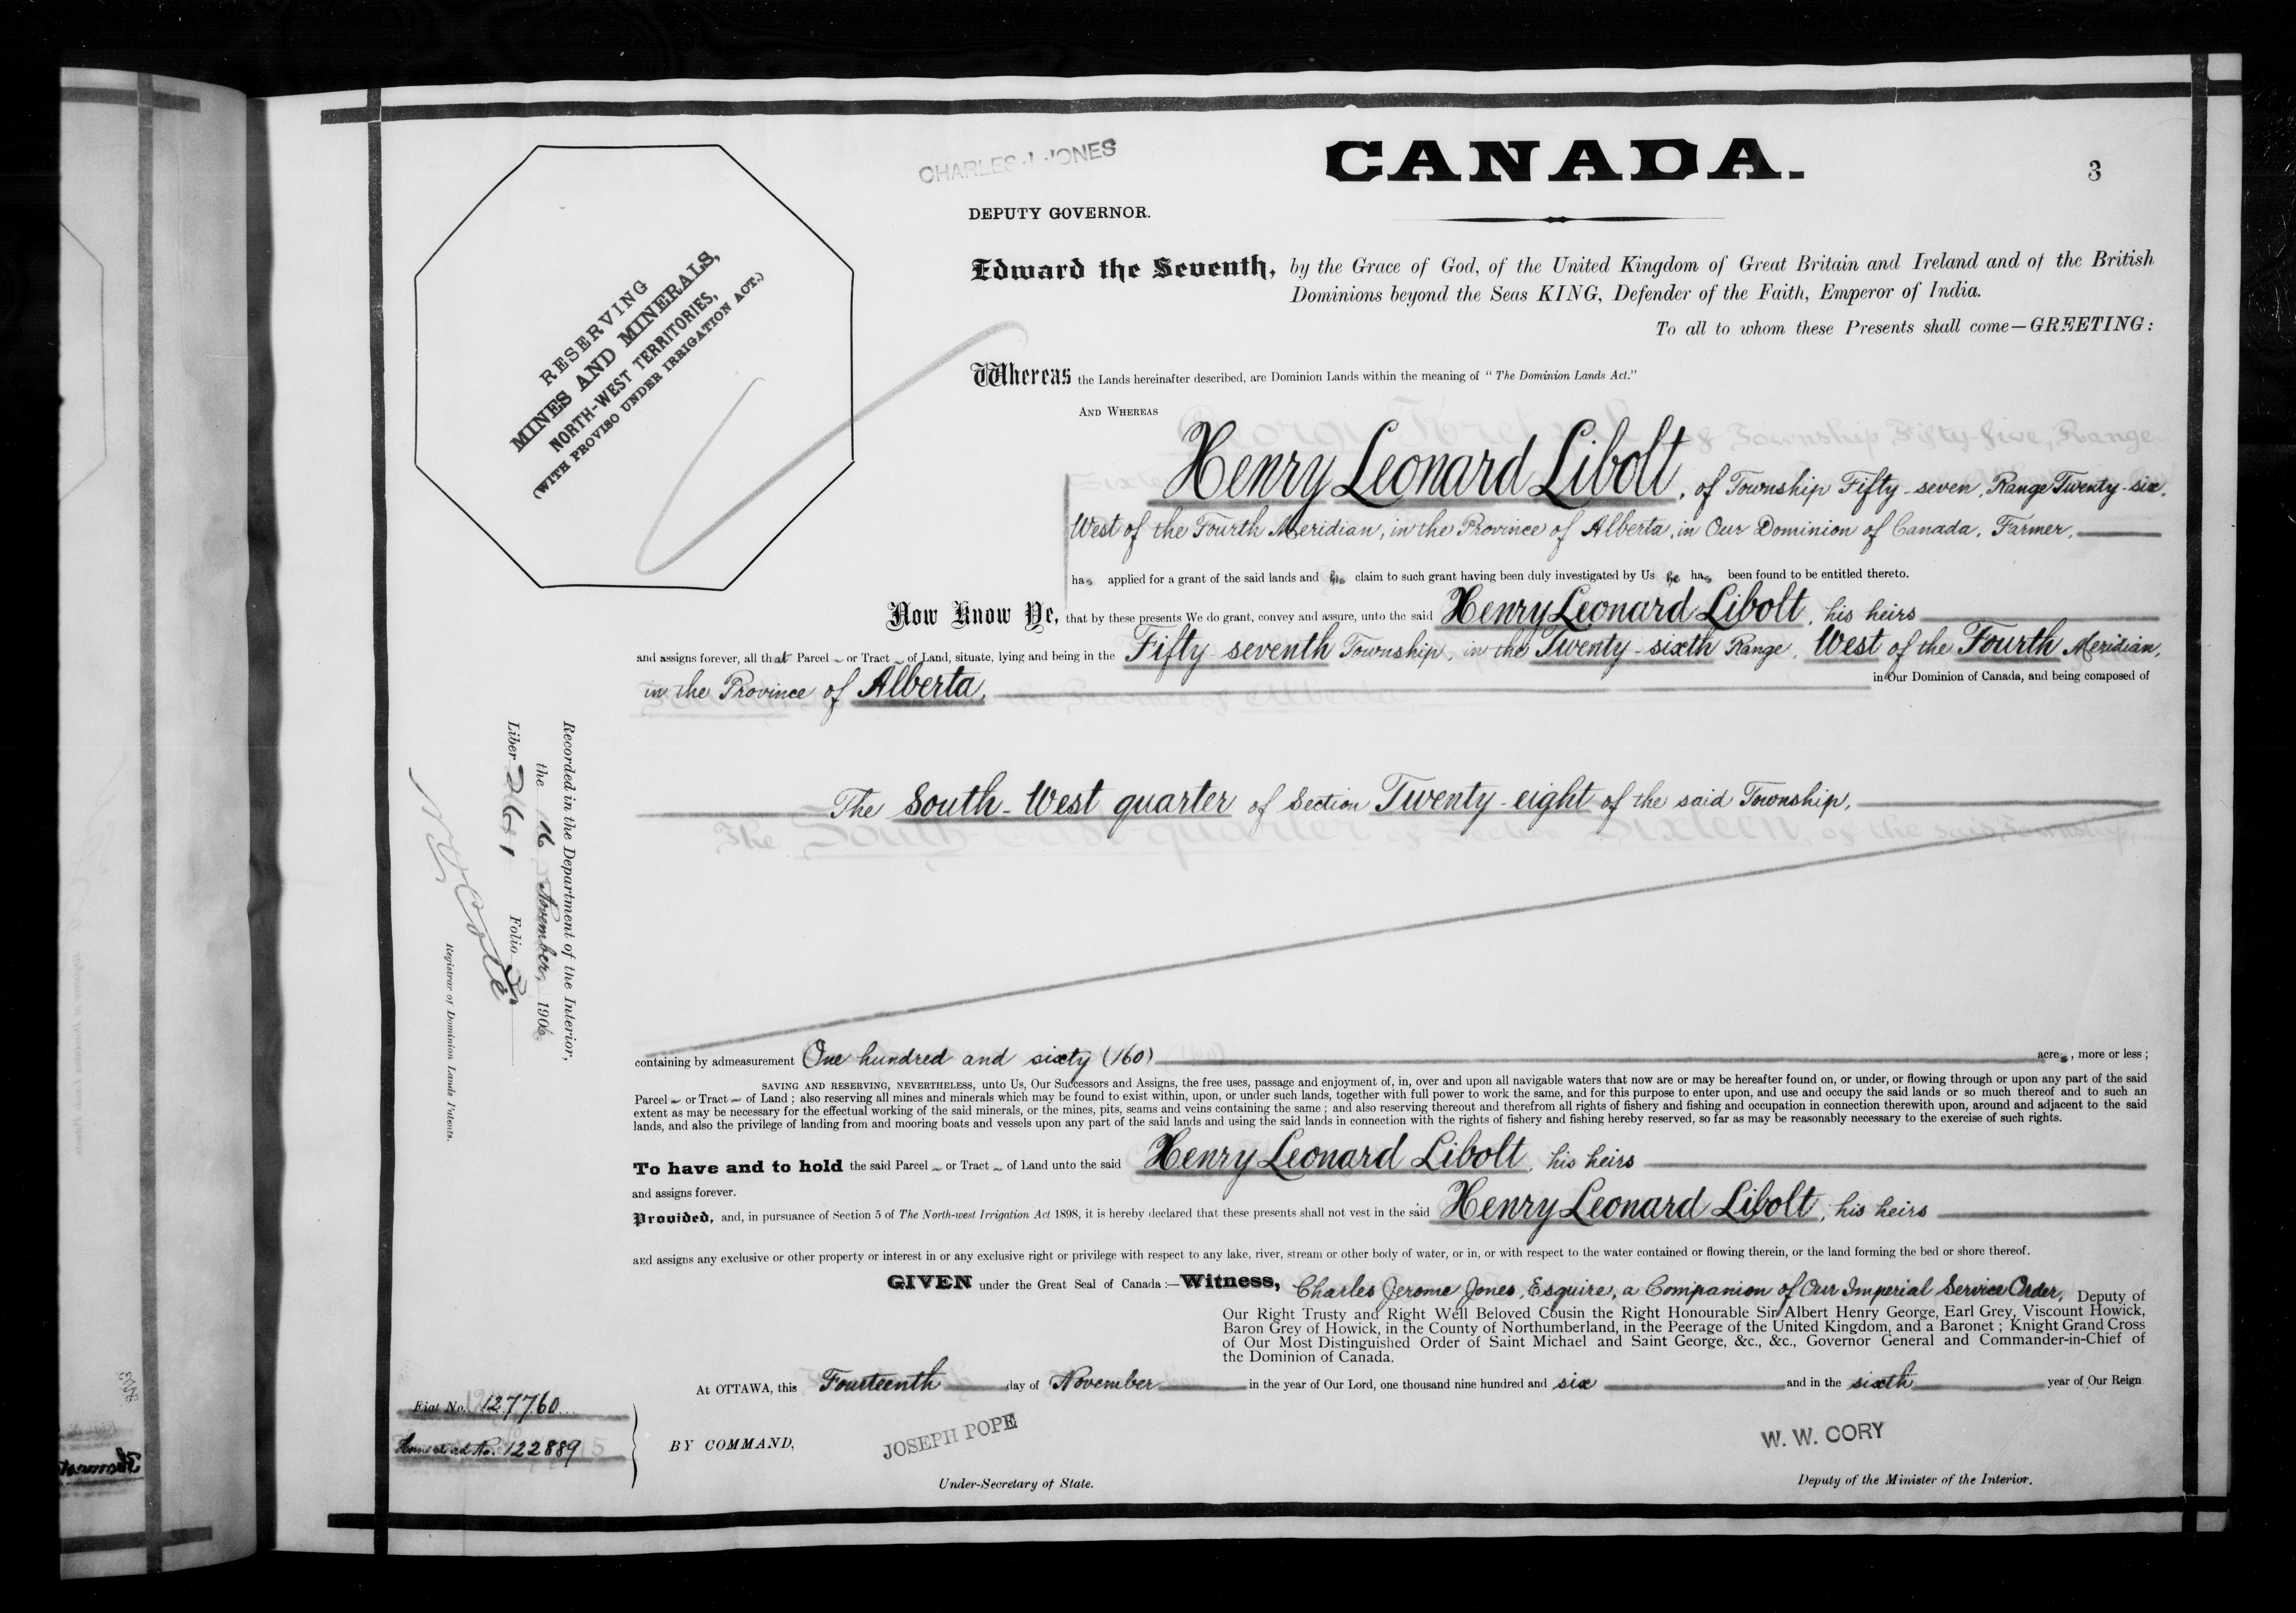 CHARLES J. JONES
CANADA.
3
DEPUTY GOVERNOR.
RESERVING
MINES AND MINERALS,
NORTH-WEST TERRITORIES,
(WITH PROVISO UNDER IRRIGATION ACT.)
Edward the Seventh, by the Grace of God, of the United Kingdom of Great Britain and Ireland and of the British
Dominions beyond the Seas KING, Defender of the Faith, Emperor of India.
To all to whom these Presents shall come—GREETING:
Whereas the Lands hereinafter described, are Dominion Lands within the meaning of "The Dominion Lands Act."
AND WHEREAS
Henry Leonard Libolt, of Township Fifty-seven, Range Twenty-six,
West of the Fourth Meridian, in the Province of Alberta, in Our Dominion of Canada, Farmer,
has applied for a grant of the said lands and his claim to such grant having been duly investigated by Us he has been found to be entitled thereto.
Now Know Ye, that by these presents We do grant, convey and assure, unto the said Henry Leonard Libolt, his heirs
and assigns forever, all that Parcel or Tract of Land, situate, lying and being in the Fifty-seventh Township, in the Twenty-sixth Range, West of the Fourth Meridian,
in the Province of Alberta, in Our Dominion of Canada, and being composed of
The South-West quarter of Section Twenty-eight of the said Township,
Recorded in the Department of the Interior,
the 16 November, 1906
Liber 261 Folio 3
Registrar of Dominion Lands Patents.
containing by admeasurement One hundred and sixty (160) acres, more or less;
SAVING AND RESERVING, NEVERTHELESS, unto Us, Our Successors and Assigns, the free uses, passage and enjoyment of, in, over and upon all navigable waters that now are or may be hereafter found on, or under, or flowing through or upon any part of the said
Parcel or Tract of Land; also reserving all mines and minerals which may be found to exist within, upon, or under such lands, together with full power to work the same, and for this purpose to enter upon, and use and occupy the said lands or so much thereof and to such an
extent as may be necessary for the effectual working of the said minerals, or the mines, pits, seams and veins containing the same; and also reserving thereout and therefrom all rights of fishery and fishing and occupation in connection therewith upon, around and adjacent to the said
lands, and also the privilege of landing from and mooring boats and vessels upon any part of the said lands and using the said lands in connection with the rights of fishery and fishing hereby reserved, so far as may be reasonably necessary to the exercise of such rights.
To have and to hold the said Parcel or Tract of Land unto the said Henry Leonard Libolt, his heirs
and assigns forever.
Provided, and, in pursuance of Section 5 of The North-west Irrigation Act 1898, it is hereby declared that these presents shall not vest in the said Henry Leonard Libolt, his heirs
and assigns any exclusive or other property or interest in or any exclusive right or privilege with respect to any lake, river, stream or other body of water, or in, or with respect to the water contained or flowing therein, or the land forming the bed or shore thereof.
GIVEN under the Great Seal of Canada:—Witness, Charles Jerome Jones, Esquire, a Companion of Our Imperial Service Order, Deputy of
Our Right Trusty and Right Well Beloved Cousin the Right Honourable Sir Albert Henry George, Earl Grey, Viscount Howick,
Baron Grey of Howick, in the County of Northumberland, in the Peerage of the United Kingdom, and a Baronet; Knight Grand Cross
of Our Most Distinguished Order of Saint Michael and Saint George, &c., &c., Governor General and Commander-in-Chief of
the Dominion of Canada.
At OTTAWA, this Fourteenth day of November in the year of Our Lord, one thousand nine hundred and six and in the sixth year of Our Reign
Fiat No. 127760
Homestead No. 122889
BY COMMAND,
JOSEPH POPE
Under-Secretary of State.
W. W. CORY
Deputy of the Minister of the Interior.